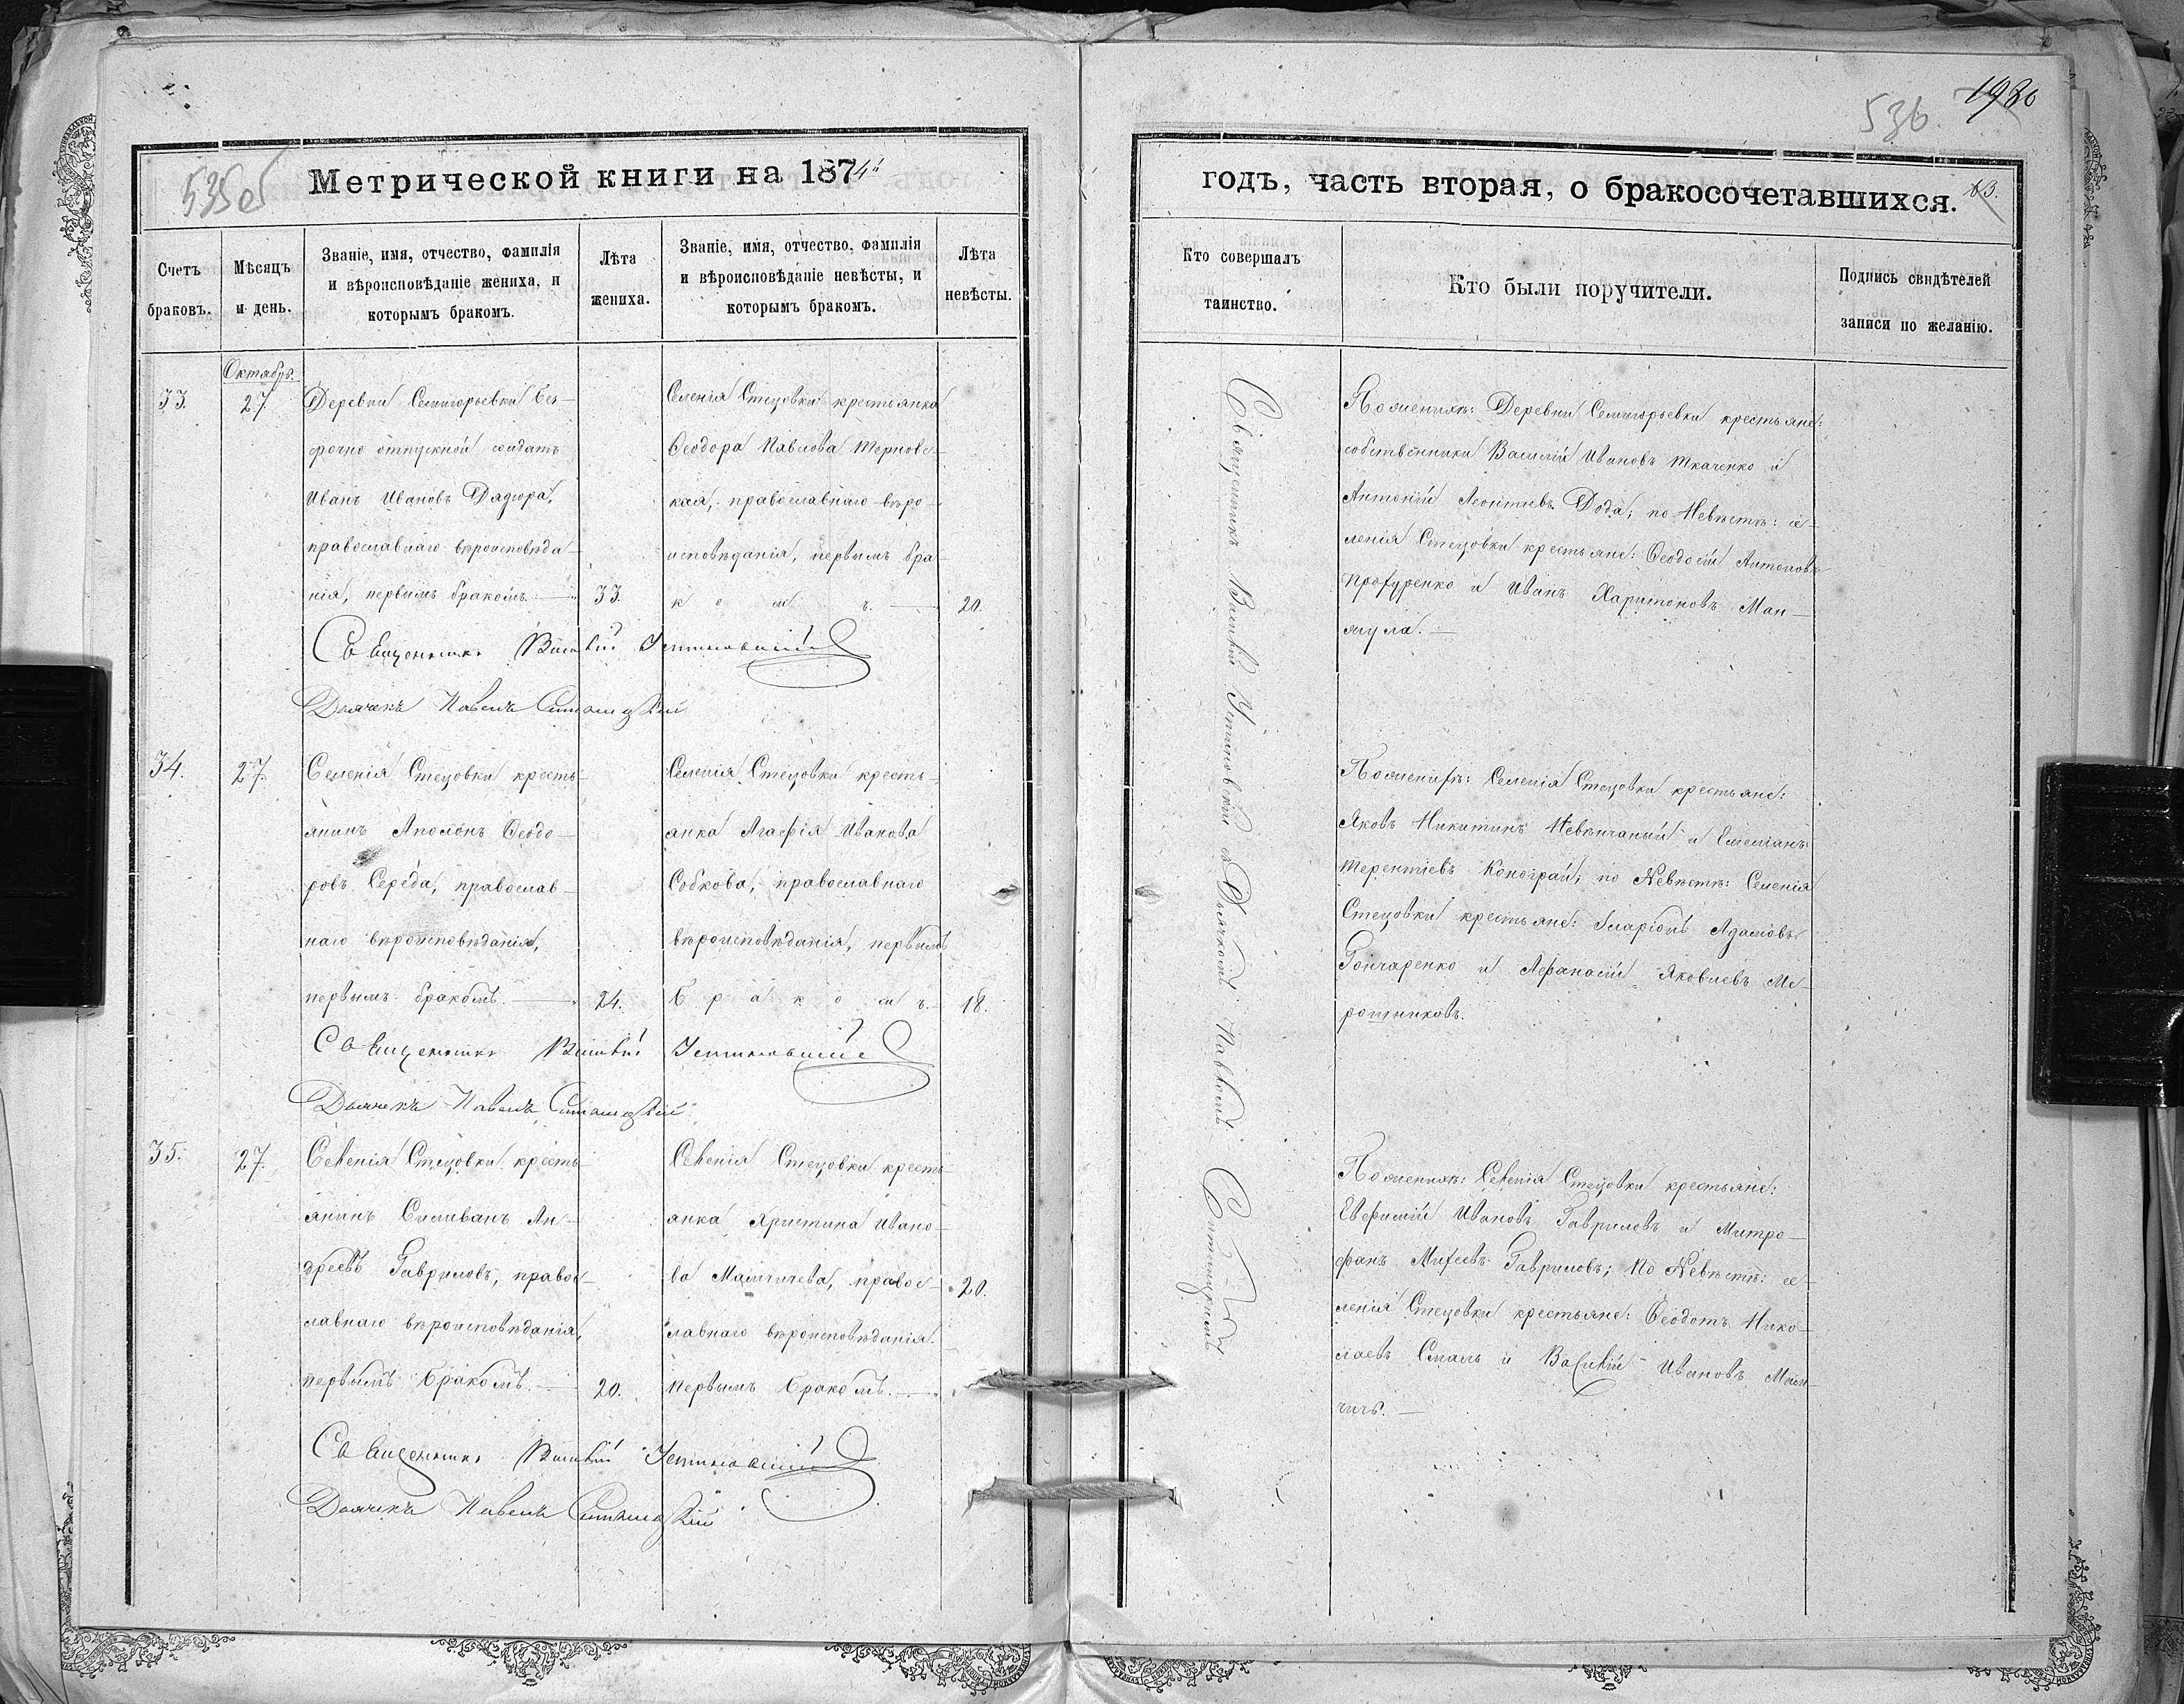 535об
Метрической книги на 1874й
Счетъ браковъ.
Мѣсяцъ и день.
Званіе, имя, отчество, фамилія и вѣроисповѣданіе жениха, и которымъ бракомъ.
Лѣта жениха.
Званіе, имя, отчество, фамилія и вѣроисповѣданіе невѣсты, и которымъ бракомъ.
Лѣта невѣсты.
Октябрь.
33.
27.
Деревни Семигорьевки без-
срочно отпускной солдатъ
Иванъ Ивановъ Дядюра,
православнаго вѣроисповѣда-
нія, первымъ бракомъ. —
33.
Селенія Стецовки крестьянка
Ѳеодора Павлова Терновс-
кая, православнаго вѣро-
исповѣданія, первымъ бра-
комъ. —
20.
Священникъ Василій Устиновскій
Дьячекъ Павелъ Ситницкій
34.
27.
Селенія Стецовки кресть-
янинъ Аполонъ Ѳеодо-
ровъ Середа, православ-
наго вѣроисповѣданія,
первымъ бракомъ. —
24.
Селенія Стецовки кресть-
янка Агафія Иванова
Собкова, православнаго
вѣроисповѣданія, первымъ
бракомъ. —
18.
Священникъ Василій Устиновскій
Дьячекъ Павелъ Ситницкій
35.
27.
Селенія Стецовки кресть-
янинъ Силиванъ Ан-
дреевъ Гавриловъ, правос-
лавнаго вѣроисповѣданія,
первымъ бракомъ. —
20.
Селенія Стецовки кресть-
янка Христина Ивано-
ва Мамчичева, правос-
лавнаго вѣроисповѣданія.
первымъ бракомъ. —
20.
Священникъ Василій Устиновскій
Дьячекъ Павелъ Ситницкій
536.
годъ, часть вторая, о бракосочетавшихся.
Кто совершалъ таинство.
Кто были поручители.
Подпись свидѣтелей записи по желанію.
Священникъ Василій Устиновскій съ Дьячкомъ Павломъ Ситницкимъ
По женихѣ: Деревни Семигорьевки крестьяне:
собственники Василій Ивановъ Ткаченко и
Антоній Леонтіевъ Дода; по Невѣстѣ: се-
ленія Стецовки крестьяне: Ѳеодосій Антоновъ
Прохуренко и Иванъ Харитоновъ Ман-
жула. —
По женихѣ: Селенія Стецовки крестьяне:
Яковъ Никитинъ Невѣнчаный и Емеліанъ
Терентіевъ Конограй; по Невѣстѣ: Селенія
Стецовки крестьяне: Иларіонъ Адамовъ
Гончаренко и Афанасій Яковлевъ Ме-
рошниковъ.
По женихѣ: Селенія Стецовки крестьяне:
Евфимій Ивановъ Гавриловъ и Митро-
фанъ Михеевъ Гавриловъ; по Невѣстѣ: се-
ленія Стецовки крестьяне: Ѳеодотъ Нико-
лаевъ Смаль и Василій Ивановъ Мам-
чичъ. —